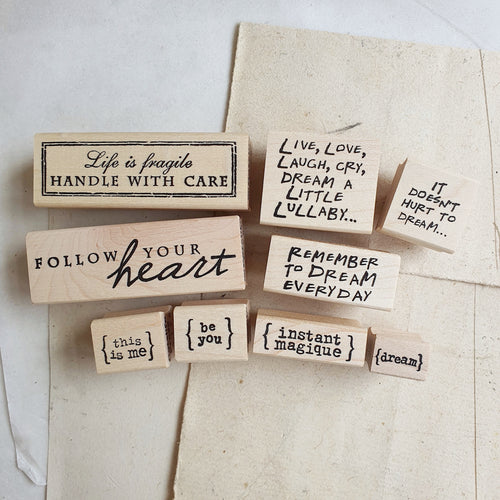 Life is fragile
HANDLE WITH CARE
LIVE, LOVE,
LAUGH, CRY,
DREAM A
LITTLE
LULLABY...
IT
DOESN'T
HURT TO
DREAM...
FOLLOW YOUR
heart
REMEMBER
TO DREAM
EVERYDAY
{this
is me}
{be
you}
{instant
magique}
{dream}